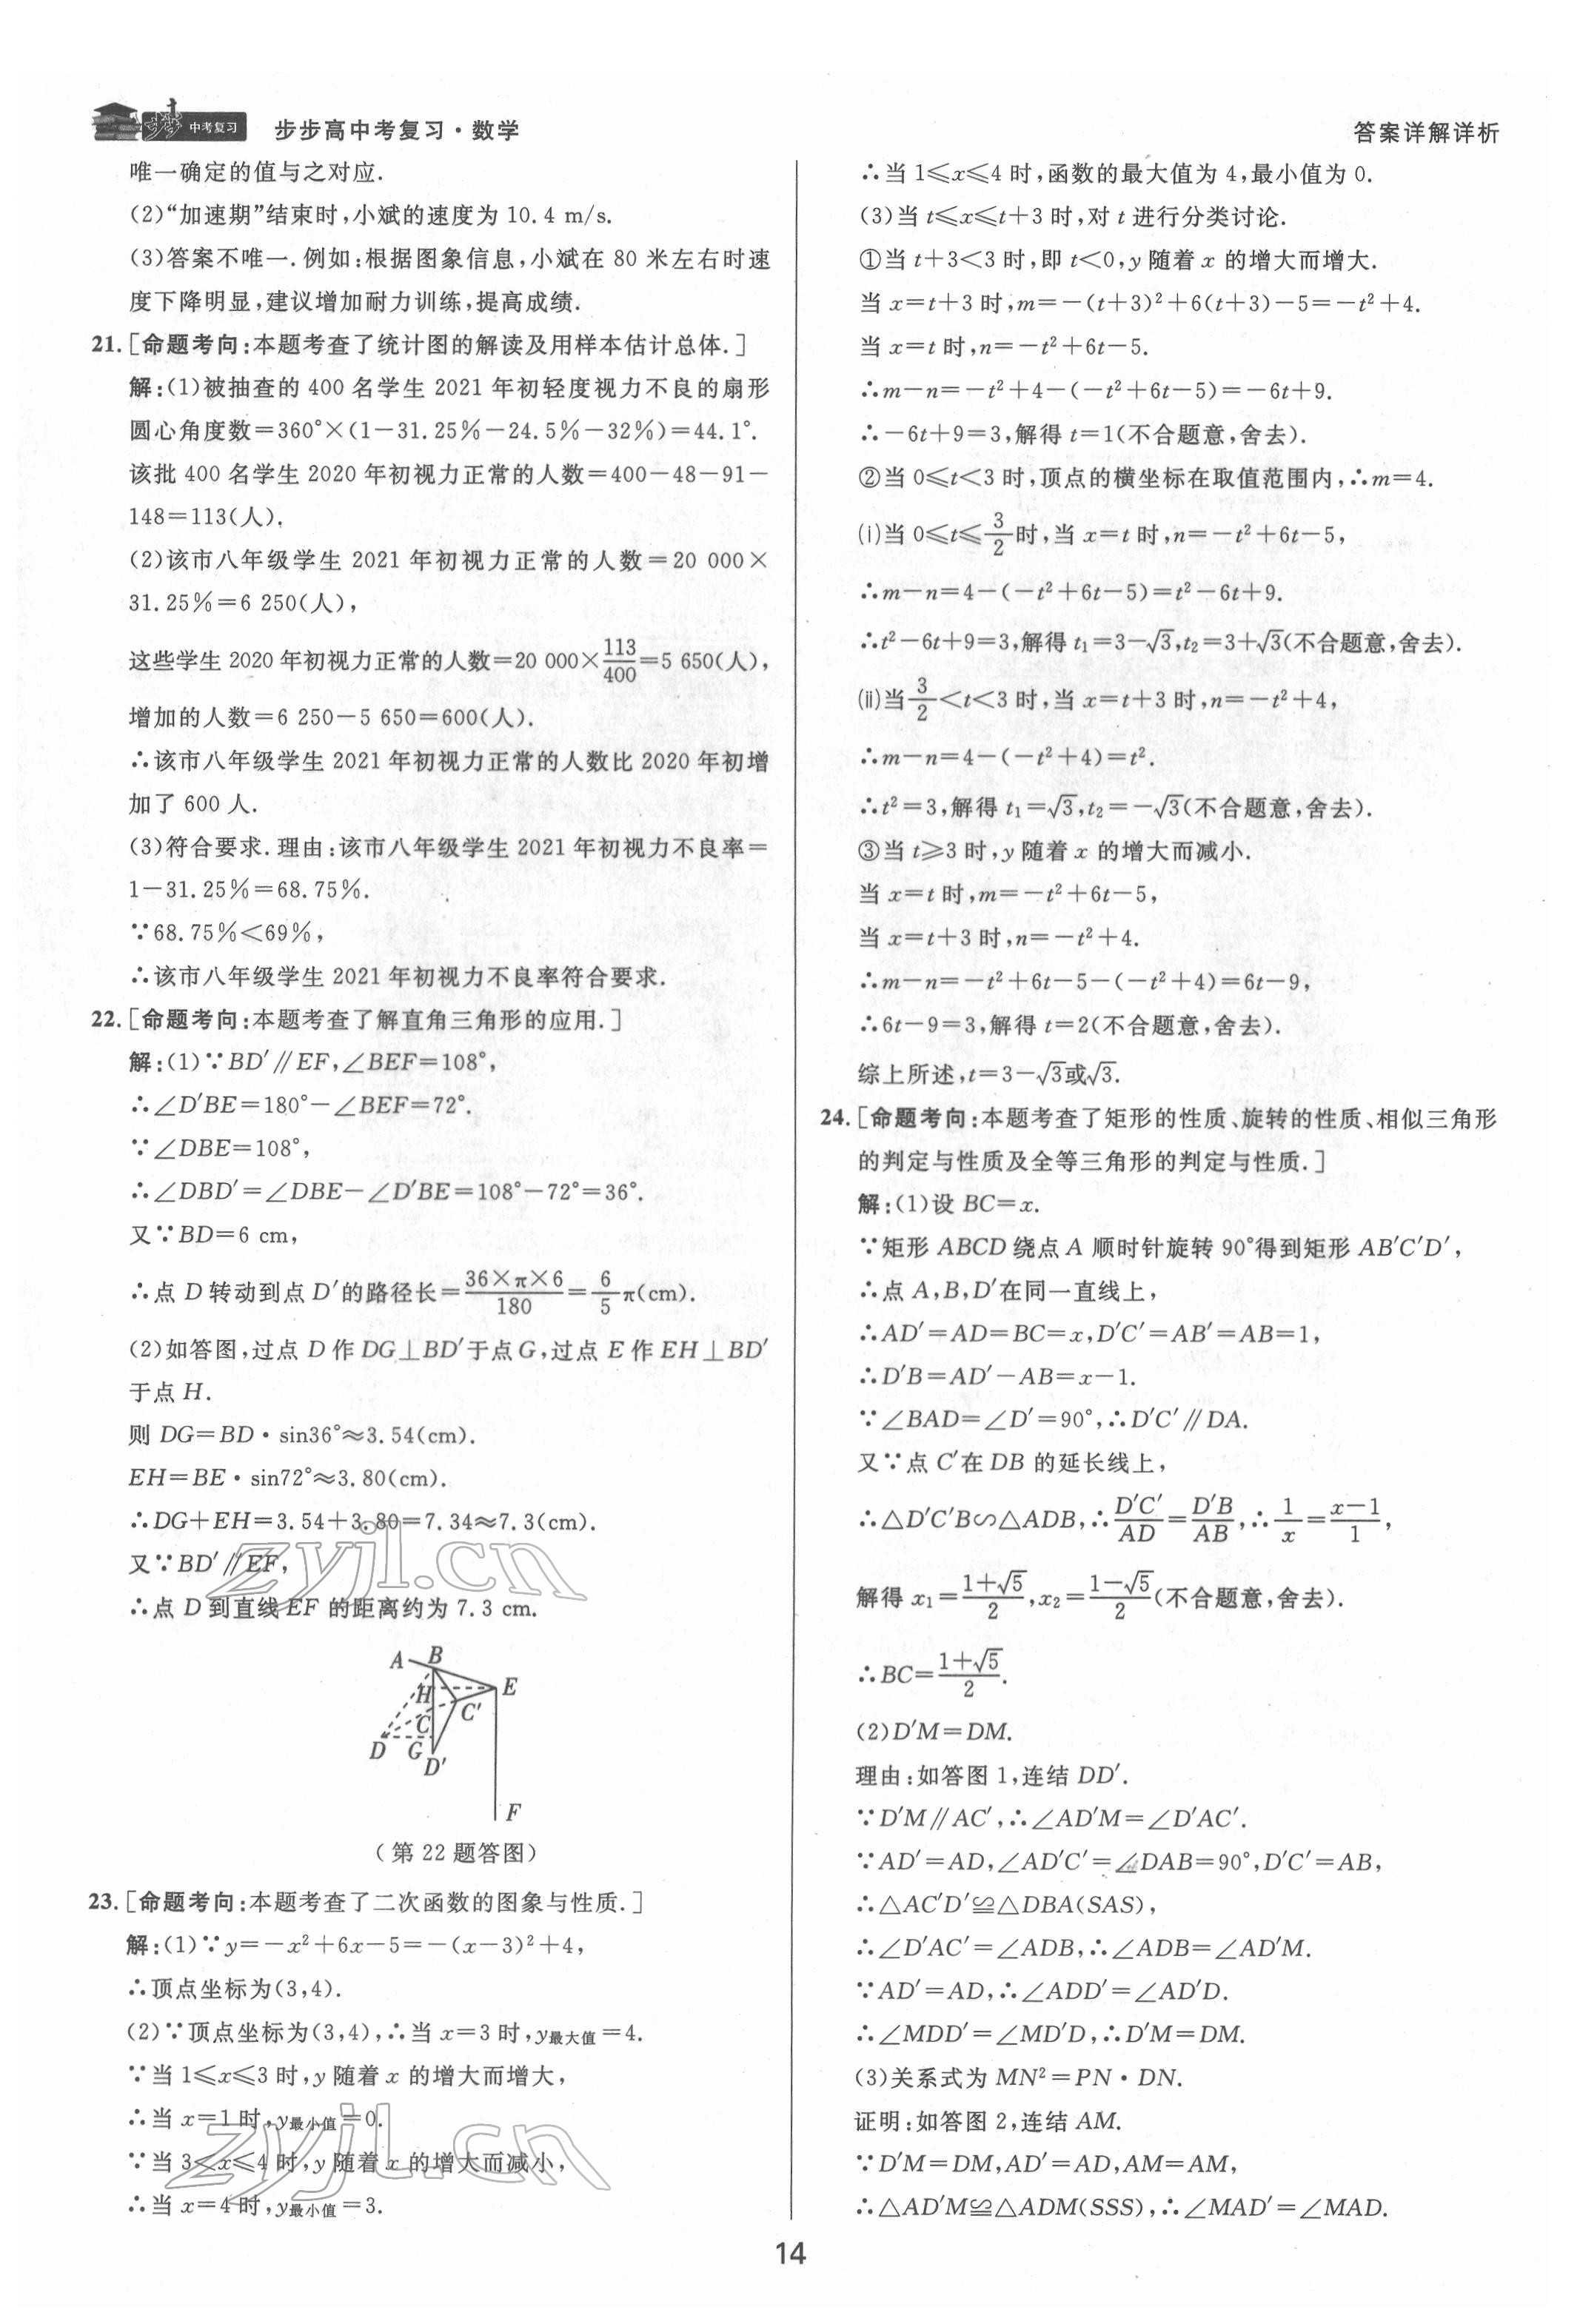 中考复习
步步高中考复习·数学
答案详解详析
唯一确定的值与之对应.
(2)“加速期”结束时,小斌的速度为 10.4 m/s.
(3)答案不唯一.例如:根据图象信息,小斌在 80 米左右时速
度下降明显,建议增加耐力训练,提高成绩.
21.[命题考向:本题考查了统计图的解读及用样本估计总体.]
解:(1)被抽查的 400 名学生 2021 年初轻度视力不良的扇形
圆心角度数=360°×(1-31.25%-24.5%-32%)=44.1°.
该批 400 名学生 2020 年初视力正常的人数=400-48-91-
148=113(人).
(2)该市八年级学生 2021 年初视力正常的人数=20 000×
31.25%=6 250(人),
这些学生 2020 年初视力正常的人数=20 000×113/400=5 650(人),
增加的人数=6 250-5 650=600(人).
∴该市八年级学生 2021 年初视力正常的人数比 2020 年初增
加了 600 人.
(3)符合要求.理由:该市八年级学生 2021 年初视力不良率=
1-31.25%=68.75%.
∵68.75%<69%,
∴该市八年级学生 2021 年初视力不良率符合要求.
22.[命题考向:本题考查了解直角三角形的应用.]
解:(1)∵BD′∥EF,∠BEF=108°,
∴∠D′BE=180°-∠BEF=72°.
∵∠DBE=108°,
∴∠DBD′=∠DBE-∠D′BE=108°-72°=36°.
又∵BD=6 cm,
∴点 D 转动到点 D′的路径长=36×π×6/180=6/5π(cm).
(2)如答图,过点 D 作 DG⊥BD′于点 G,过点 E 作 EH⊥BD′
于点 H.
则 DG=BD·sin36°≈3.54(cm).
EH=BE·sin72°≈3.80(cm).
∴DG+EH=3.54+3.80=7.34≈7.3(cm).
又∵BD′∥EF,
∴点 D 到直线 EF 的距离约为 7.3 cm.
zyjl.cn
A B
H E
C′
C
D G
D′
F
(第 22 题答图)
23.[命题考向:本题考查了二次函数的图象与性质.]
解:(1)∵y=-x²+6x-5=-(x-3)²+4,
∴顶点坐标为(3,4).
(2)∵顶点坐标为(3,4),∴当 x=3 时,y最大值=4.
∵当 1⩽x⩽3 时,y 随着 x 的增大而增大,
∴当 x=1 时,y最小值=0.
∵当 3<x⩽4 时,y 随着 x 的增大而减小,
∴当 x=4 时,y最小值=3.
zyjl.cn
∴当 1⩽x⩽4 时,函数的最大值为 4,最小值为 0.
(3)当 t⩽x⩽t+3 时,对 t 进行分类讨论.
①当 t+3<3 时,即 t<0,y 随着 x 的增大而增大.
当 x=t+3 时,m=-(t+3)²+6(t+3)-5=-t²+4.
当 x=t 时,n=-t²+6t-5.
∴m-n=-t²+4-(-t²+6t-5)=-6t+9.
∴-6t+9=3,解得 t=1(不合题意,舍去).
②当 0⩽t<3 时,顶点的横坐标在取值范围内,∴m=4.
(ⅰ)当 0⩽t⩽3/2时,当 x=t 时,n=-t²+6t-5,
∴m-n=4-(-t²+6t-5)=t²-6t+9.
∴t²-6t+9=3,解得 t₁=3-√3,t₂=3+√3(不合题意,舍去).
(ⅱ)当3/2<t<3 时,当 x=t+3 时,n=-t²+4,
∴m-n=4-(-t²+4)=t².
∴t²=3,解得 t₁=√3,t₂=-√3(不合题意,舍去).
③当 t⩾3 时,y 随着 x 的增大而减小.
当 x=t 时,m=-t²+6t-5,
当 x=t+3 时,n=-t²+4.
∴m-n=-t²+6t-5-(-t²+4)=6t-9,
∴6t-9=3,解得 t=2(不合题意,舍去).
综上所述,t=3-√3或√3.
24.[命题考向:本题考查了矩形的性质、旋转的性质、相似三角形
的判定与性质及全等三角形的判定与性质.]
解:(1)设 BC=x.
∵矩形 ABCD 绕点 A 顺时针旋转 90°得到矩形 AB′C′D′,
∴点 A,B,D′在同一直线上,
∴AD′=AD=BC=x,D′C′=AB′=AB=1,
∴D′B=AD′-AB=x-1.
∵∠BAD=∠D′=90°,∴D′C′∥DA.
又∵点 C′在 DB 的延长线上,
∴△D′C′B∽△ADB,∴D′C′/AD=D′B/AB,∴1/x=(x-1)/1,
解得 x₁=(1+√5)/2,x₂=(1-√5)/2(不合题意,舍去).
∴BC=(1+√5)/2.
(2)D′M=DM.
理由:如答图 1,连结 DD′.
∵D′M∥AC′,∴∠AD′M=∠D′AC′.
∵AD′=AD,∠AD′C′=∠DAB=90°,D′C′=AB,
∴△AC′D′≌△DBA(SAS),
∴∠D′AC′=∠ADB,∴∠ADB=∠AD′M.
∵AD′=AD,∴∠ADD′=∠AD′D.
∴∠MDD′=∠MD′D,∴D′M=DM.
(3)关系式为 MN²=PN·DN.
证明:如答图 2,连结 AM.
∵D′M=DM,AD′=AD,AM=AM,
∴△AD′M≌△ADM(SSS),∴∠MAD′=∠MAD.
14